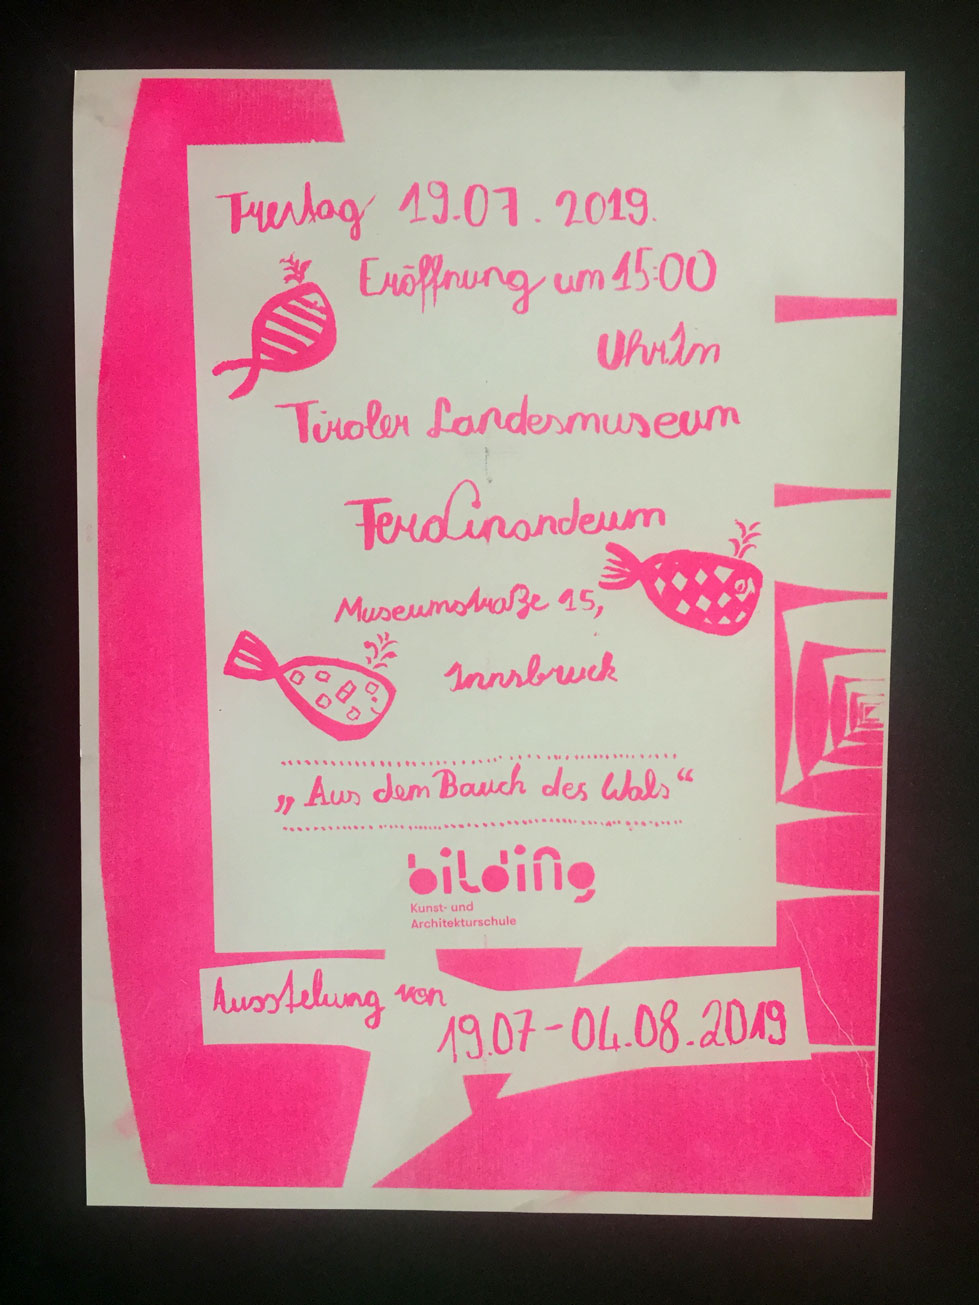 Freitag 19.07.2019.
Eröffnung um 15:00
Uhr.In
Tiroler Landesmuseum
Ferdinandeum
Museumstraße 15,
Innsbruck
„Aus dem Bauch des Wals“
bilding
Kunst- und
Architekturschule
Ausstelung von
19.07-04.08.2019